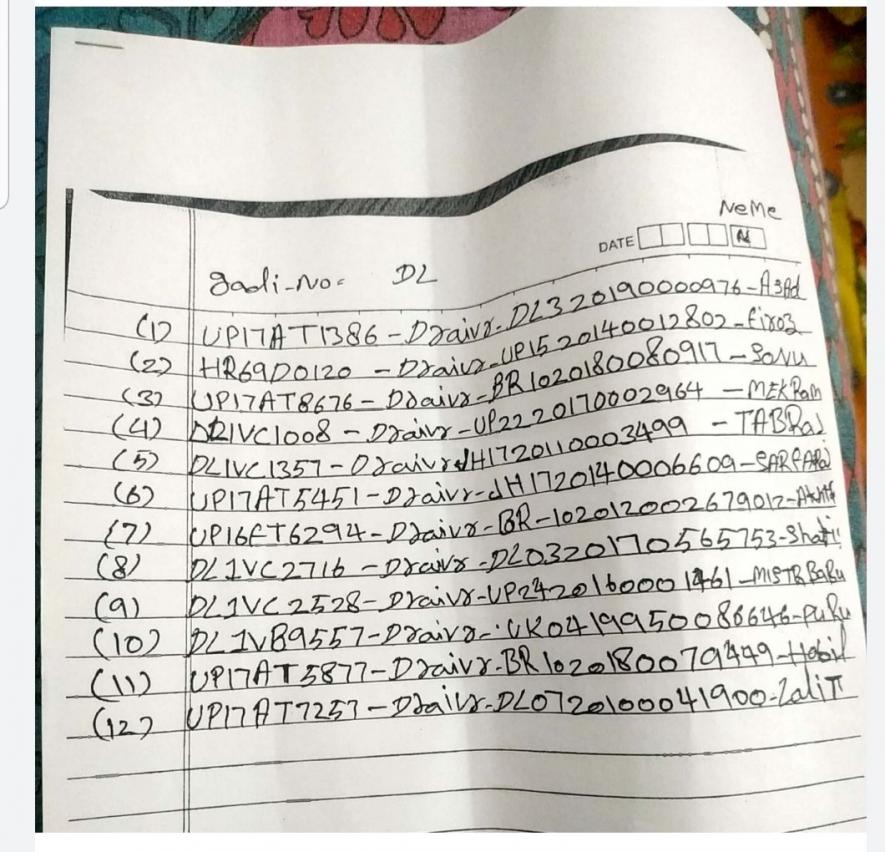 NeMe
DATE
gadi-No= DL
(1) UP17AT1386-Draivr-DL320190000976-ASAd
(2) HR69D0120-Draivr-UP1520140012802-firoz
(3) UP17AT8676-Draivr-BR1020180080917-Sonu
(4) DL1VC1008-Draivr-UP2220170002964-MEKRam
(5) DL1VC1357-Draivr-JH1720110003499-TABRaj
(6) UP17AT5451-Draivr-JH1720140006609
(7) UP16FT6294-Draivr-BR-10201200267901
(8) DL1VC2716-Draivr-DL0320170565753
(9) DL1VC2528-Draivr-UP2420160001461-MISTR BaBu
(10) DL1VB9557-Draivr-UK0419950086646-PuRu
(11) UP17AT5877-Draivr-BR1020180079449-Habil
(12) UP17AT7257-Draivr-DL0720100041900-Zalim